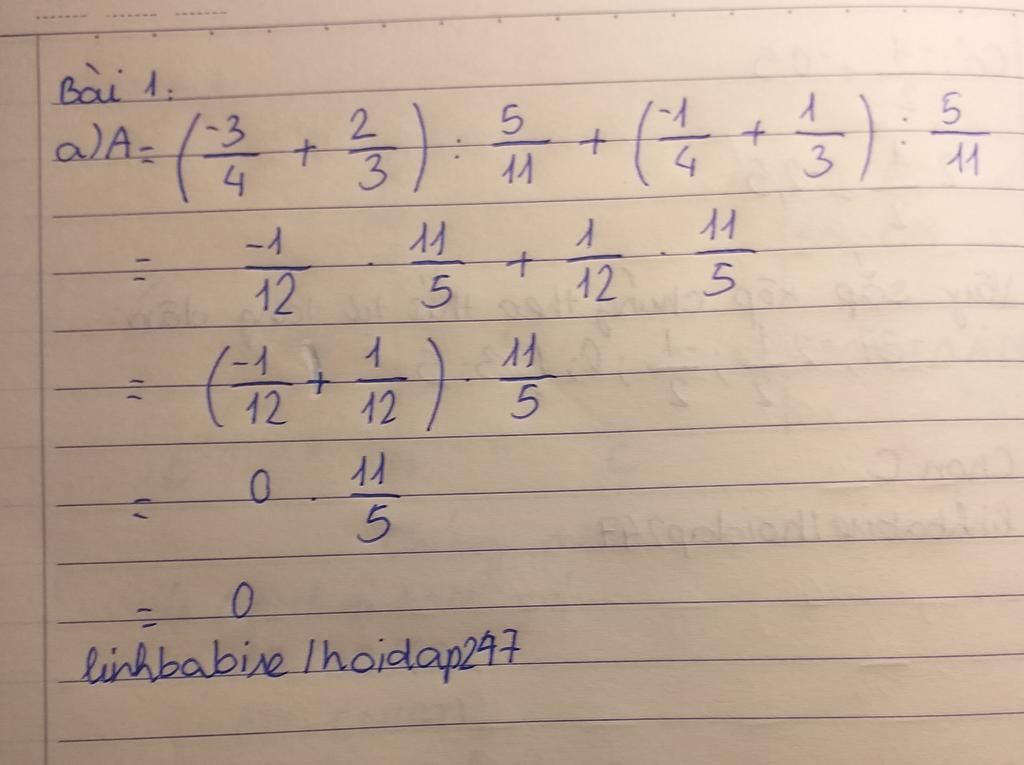 Bài 1:
a) A = (-3/4 + 2/3) : 5/11 + (-1/4 + 1/3) : 5/11
= -1/12 . 11/5 + 1/12 . 11/5
= (-1/12 + 1/12) . 11/5
= 0 . 11/5
= 0
linhbabise/hoidap247